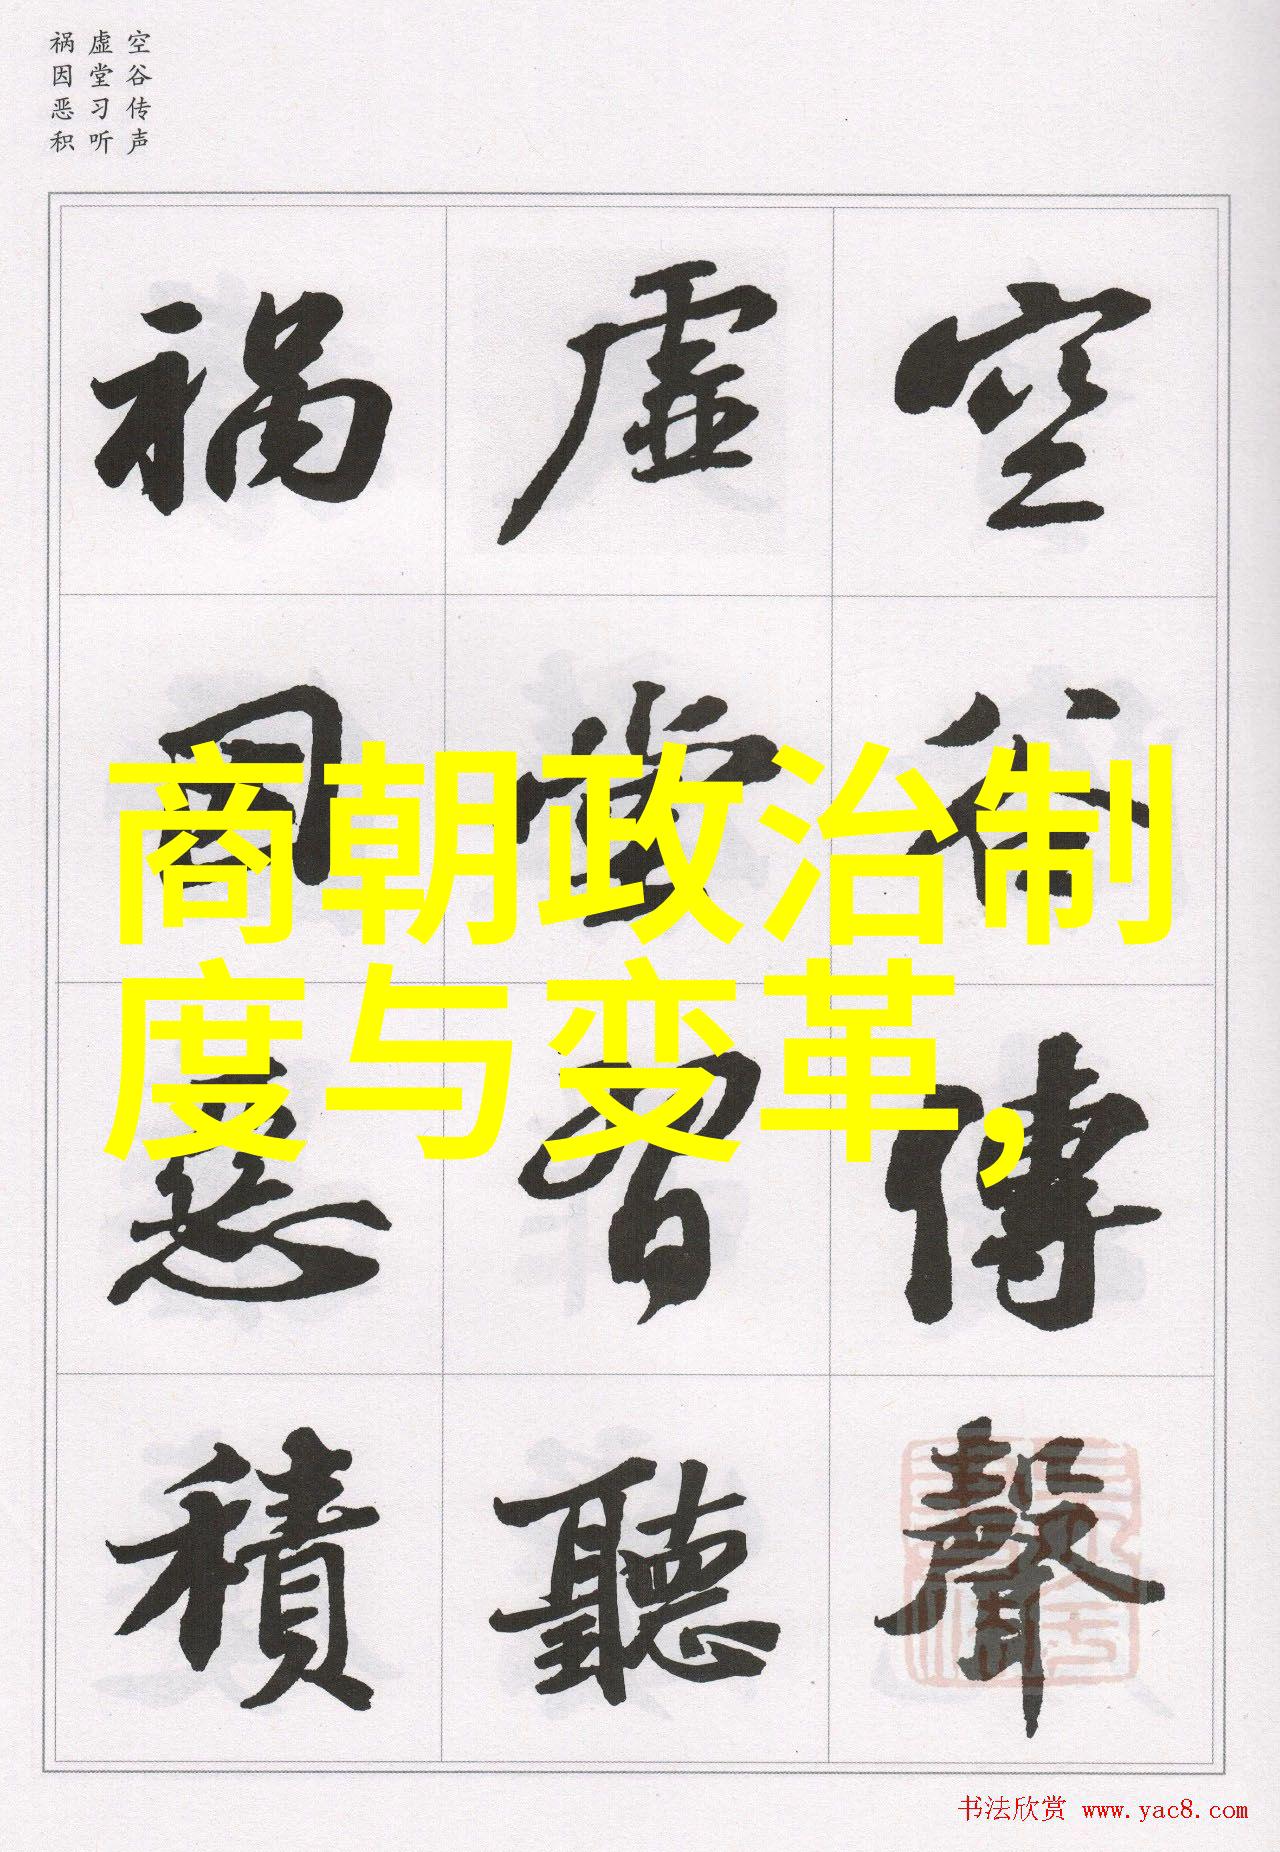 空谷传声
虚堂习听
祸因恶积
空谷傳聲
虛堂習聽
禍因惡積
商朝政治制
度与变革,
书法欣赏 www.yac8.com